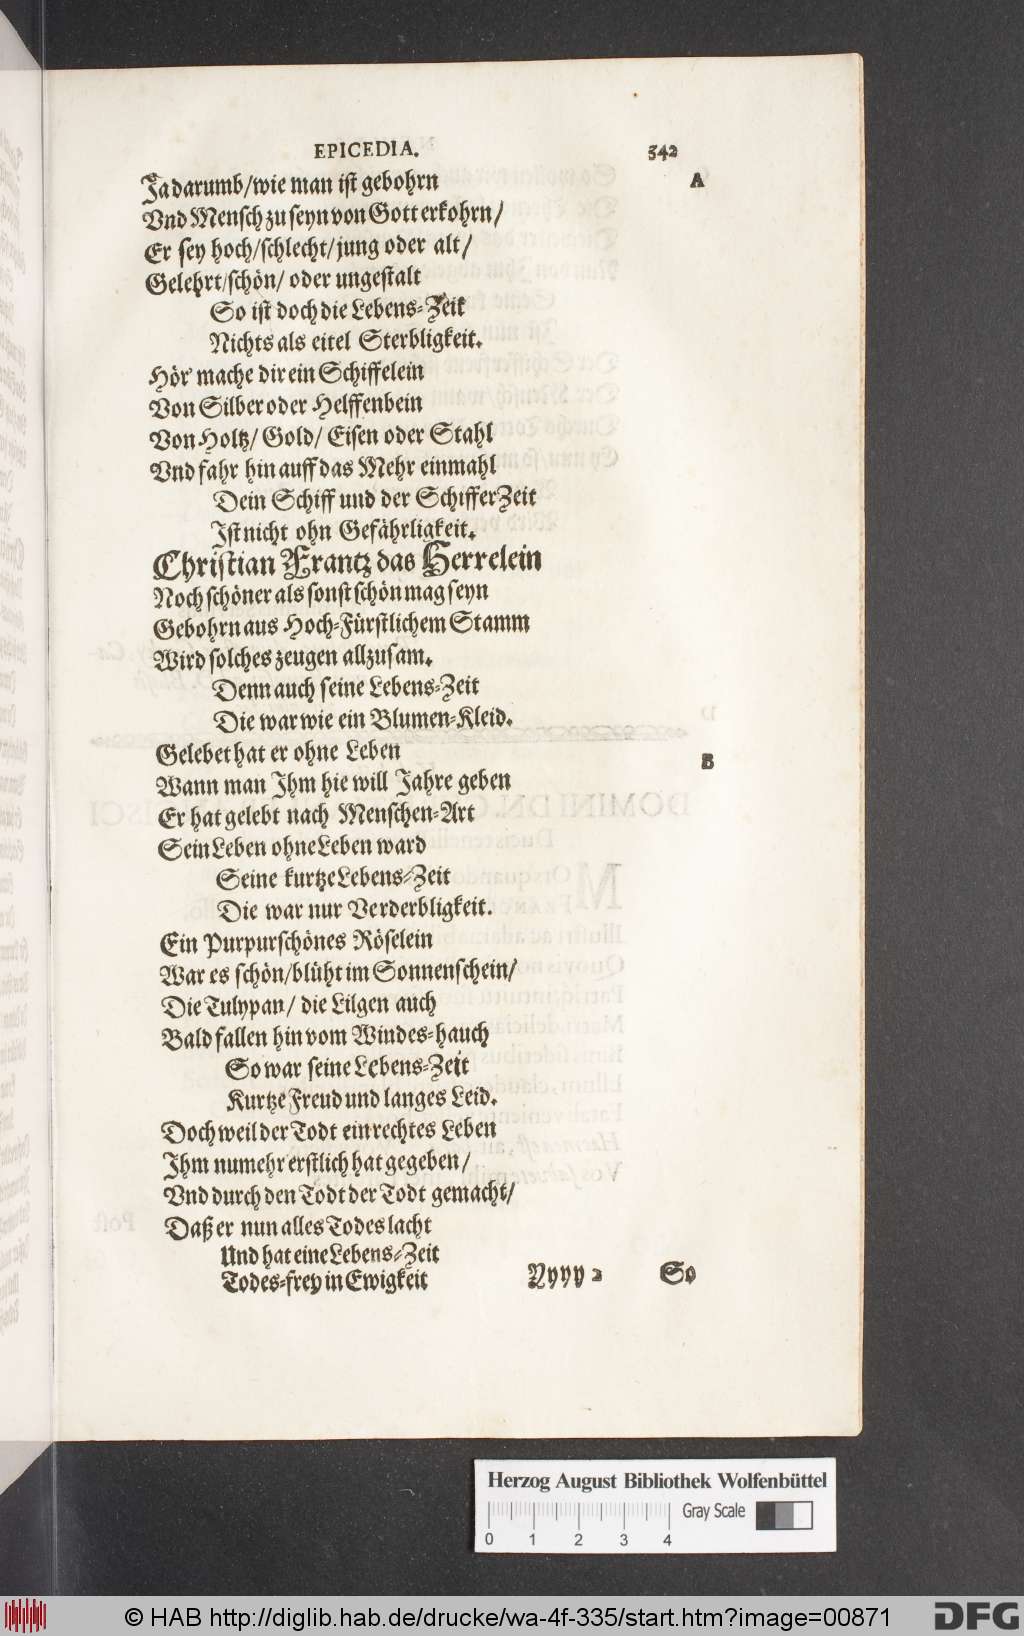 EPICEDIA. 342
Ja darumb/wie man ist gebohrn A
Vnd Mensch zu seyn von Gott erkohrn/
Er sey hoch/schlecht/jung oder alt/
Gelehrt/schön/ oder ungestalt
So ist doch die Lebens-Zeit
Nichts als eitel Sterbligkeit.
Hör mache dir ein Schiffelein
Von Silber oder Helffenbein
Von Holtz/ Gold/ Eisen oder Stahl
Vnd fahr hin auff das Mehr einmahl
Dein Schiff und der Schiffer Zeit
Ist nicht ohn Gefährligkeit.
Christian Frantz das Herrelein
Noch schöner als sonst schön mag seyn
Gebohrn aus Hoch-Fürstlichem Stamm
Wird solches zeugen allzusam.
Denn auch seine Lebens-Zeit
Die war wie ein Blumen-Kleid.
Gelebet hat er ohne Leben B
Wann man Ihm hie will Jahre geben
Er hat gelebt nach Menschen-Art
Sein Leben ohne Leben ward
Seine kurtze Lebens-Zeit
Die war nur Verderbligkeit.
Ein Purpurschönes Röselein
War es schön/blüht im Sonnenschein/
Die Tulypan/ die Lilgen auch
Bald fallen hin vom Windes-hauch
So war seine Lebens-Zeit
Kurtze Freud und langes Leid.
Doch weil der Todt ein rechtes Leben
Ihm numehr erstlich hat gegeben/
Vnd durch den Todt der Todt gemacht/
Daß er nun alles Todes lacht
Und hat eine Lebens-Zeit
Todes-frey in Ewigkeit Nyyy 2 So
Herzog August Bibliothek Wolfenbüttel
Gray Scale
0 1 2 3 4
© HAB http://diglib.hab.de/drucke/wa-4f-335/start.htm?image=00871 DFG